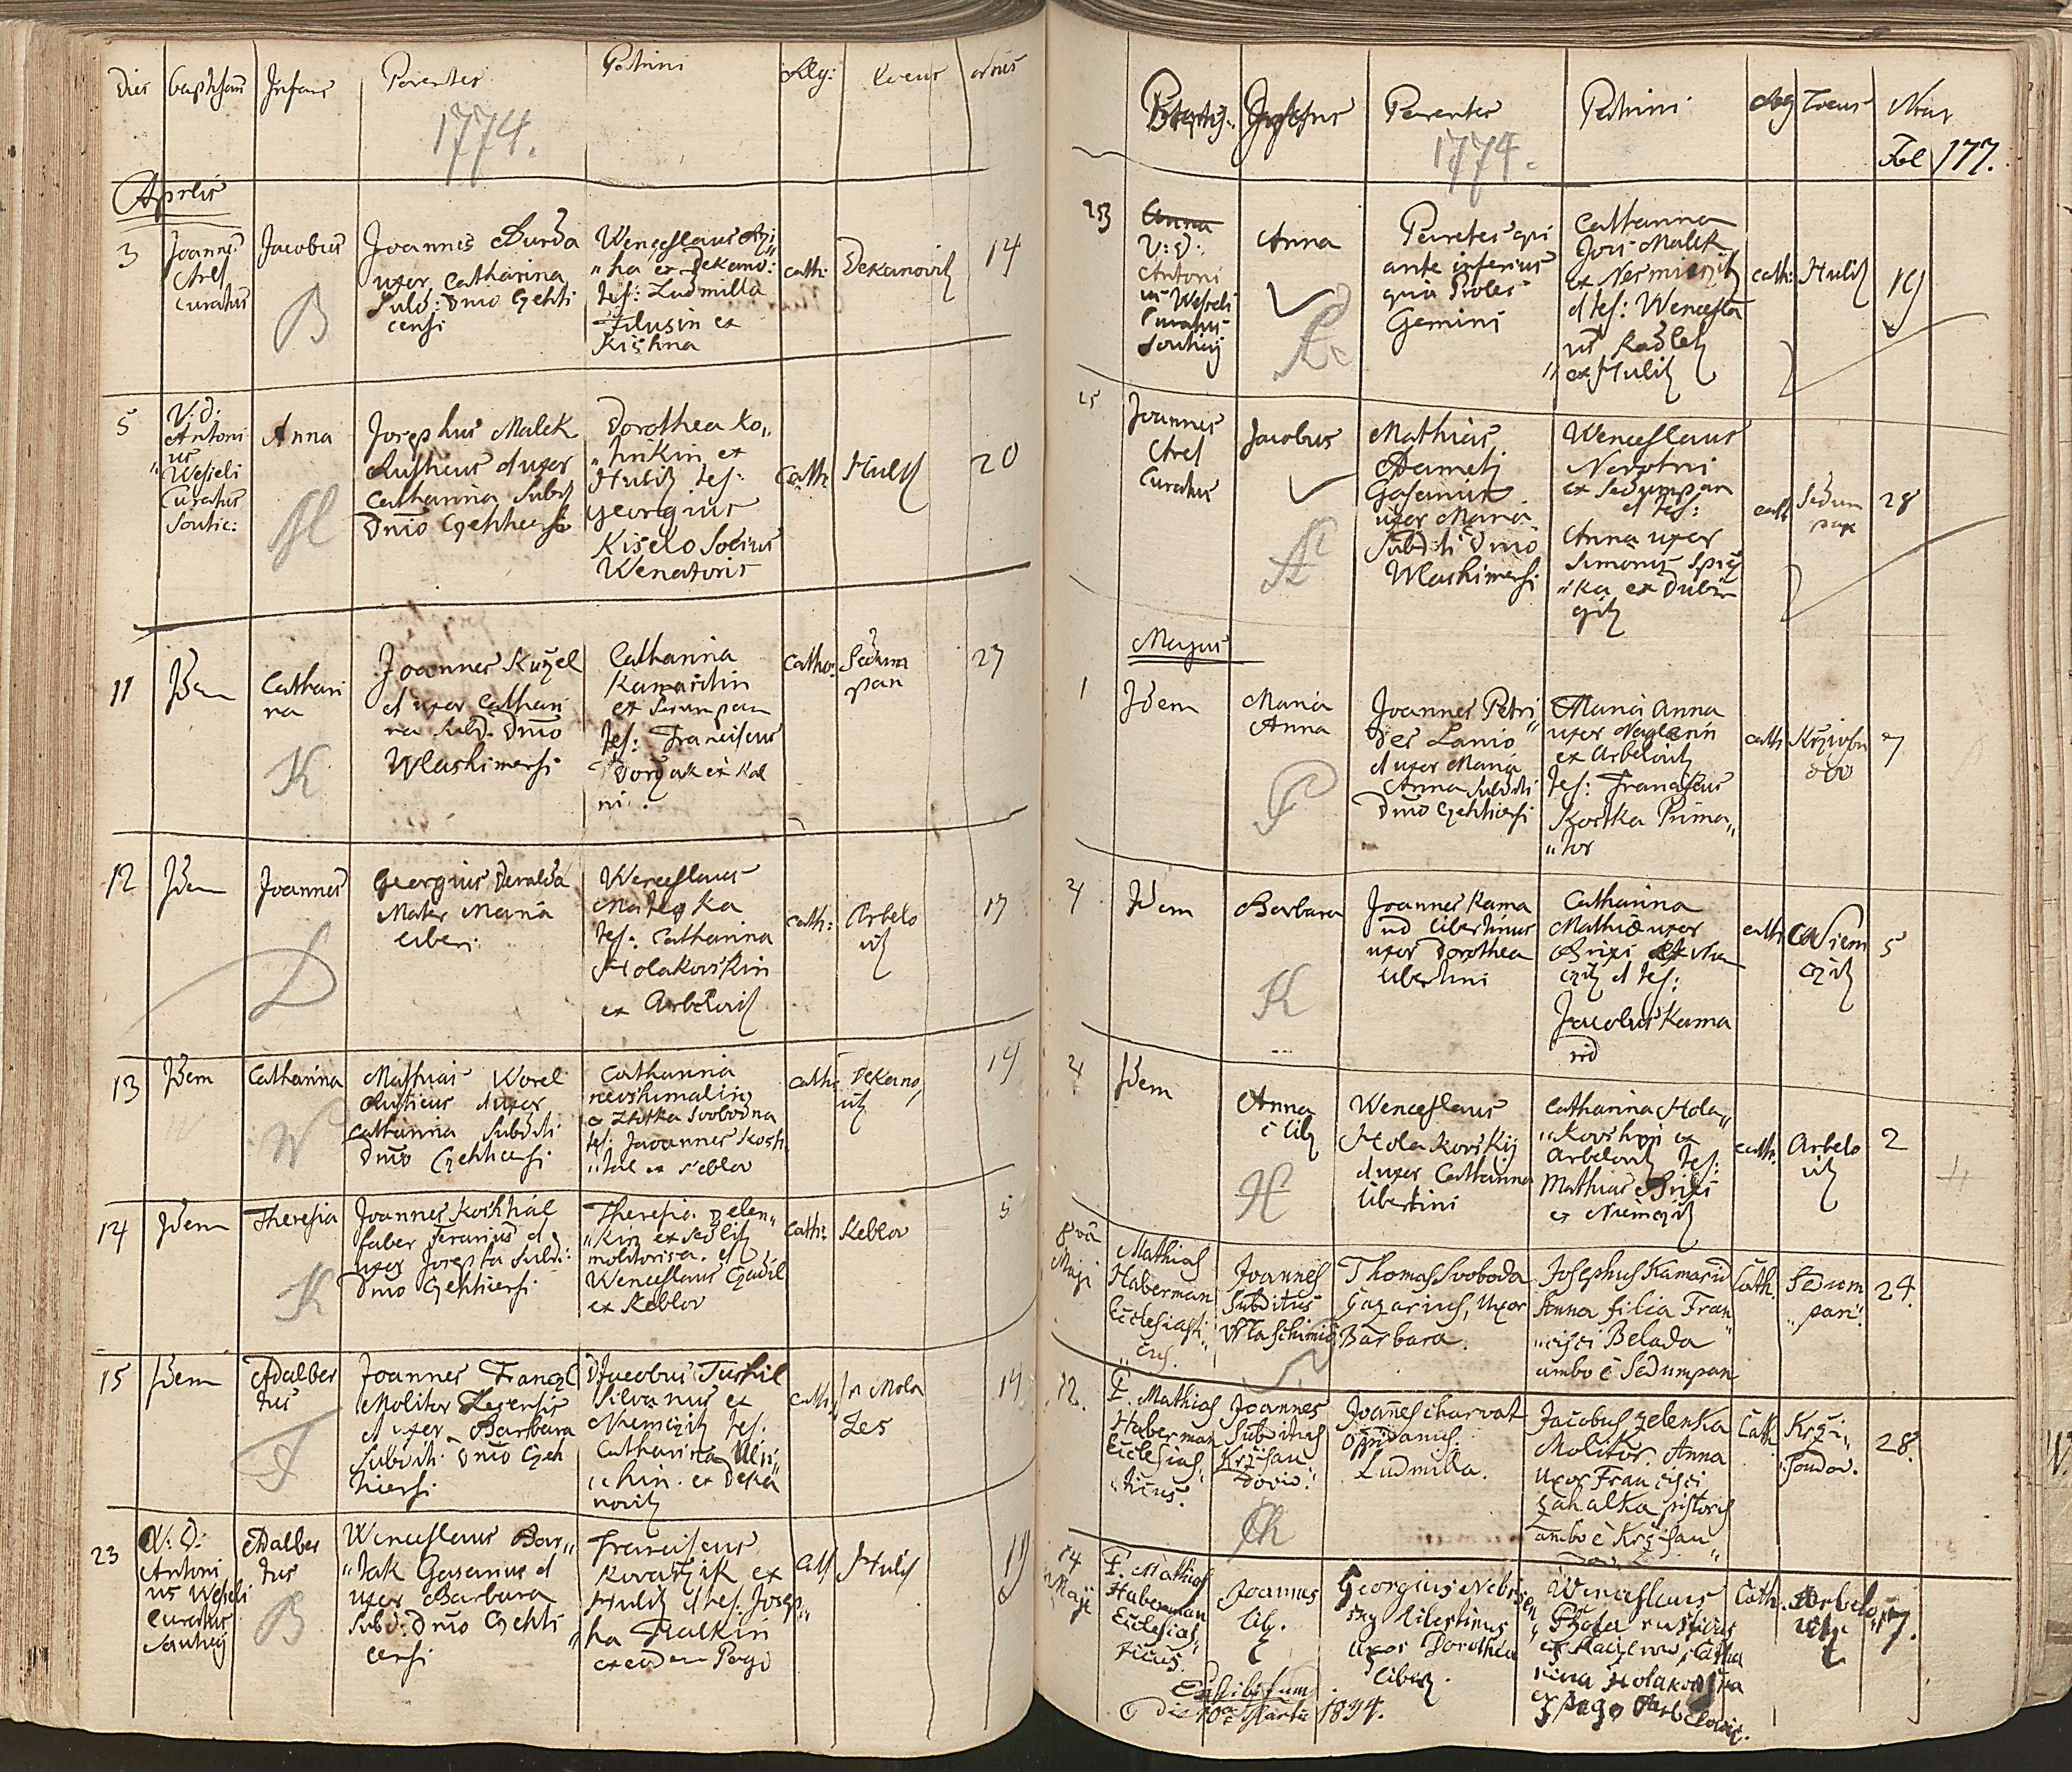 Dies
baptisans
Infans
Parentes
Patrini
Relig:
Locus
1774.
Aprilis
3
Joannes
Aref
Curatus
Jacobus
B
Joannes Burda
uxor Catharina
Subd: Dnio Czehti
censi
Wenceslaus
ha ex Dekano:
tes: Ludmilla
Filusin ex
Kischna
cath:
Dekanovitz
14
5
V: D:
Antoni
us
Wesseli
Curatus
Soutic:
Anna
M
Josephus Malek
Rusticus et uxor
Catharina Subd
Dnio Czehticensi
Dorothea Ko„
„hnkin ex
Hulitz tes:
Georgius
Kiselo Socius
Wenatoris
Cath:
Hulitz
20
11
Idem
Cathari
na
K
Joannes Kuzel
et uxor Cathari
na Subd. Dnio
Wlashimensi
Catharina
Kamaritin
ex Sedumpan
tes: Franciscus
Dorzak ex Kal
ni.
Catho:
Sedum
pan
27
12
Idem
Joannes
D
Georgius Beralda
Mater Maria
Liberi
Wenceslaus
Matejka
tes: Catharina
Holakovskin
ex Arbelovitz
cath:
Arbelo
vitz
17
13
Idem
Catharina
W
Mathias Worel
Rusticus et uxor
Catharina Subditi
Dnio Czehticensi
Catharina
nevshimalin
tes: Joannes Kosh
„tal ex Keblov
cath:
Dekano
vitz
19
14
Idem
Theresia
K
Joannes Koshtial
faber ferarius et
uxor Josepha Subdi:
Dnio Czehticensi
Theresia Zelen„
„kin ex Sedlitz
molitorisa. et
Wenceslaus Czadil
ex Keblov
cath:
Keblov
5
15
Idem
Adalber
tus
F
Joannes Francz
Molitor
et uxor Barbara
Subditi Dnio Czeh
ticensi
Jacobus Tushil
Silvanus ex
Niemczitz tes:
Catharina
„chin. ex Deka
novitz
cath
In Mola
Zes
14
23
V: D:
Antoni
us Wesseli
Curatus
Adalber
tus
B
Wenceslaus Bar„
„tak Gasarius et
uxor Barbara
Subd: Dnio Czehti
censi
Franciscus
Kovarzik ex
Hulitz et tes. Josep„
ha Fialkin
ex eodem Pago
cath
Hulitz
19
Baptis:
Infans
Parentes
Patrini
Relig
Locus
Nrus
1774.
Fol 177.
23
Anna
V: D:
Antoni
us Wesseli
Curatus
Anna
Parentes qui
ante inferius
quia Proles
Gemini
Catharina
Jois Malek
et tes: Wencesla
us Kadletz
ex Hulitz
cath:
Hulitz
19
25
Joannes
Aref
Curatus
Jacobus
A
Mathias
Adametz
Gasarius
uxor Maria
Subditi Dnio
Wlashimensi
Wenceslaus
Novotni
ex Sedumpan
et tes:
Anna uxor
Simonis Spicz
„ka ex Dubie
gitz
cath
Sedum
pan
28
Majus
1
Idem
Maria
Anna
P
Joannes Petri
des Lanio
et uxor Maria
Anna Subditi
Dnio Czehticensi
Maria Anna
uxor Naglerin
ex Arbelovitz
tes: Franciscus
Kostka Prima„
„tor
cath
Krzivsou
dov
7
4
Idem
Barbara
K
Joannes Kama
rid libertinus
uxor Dorothea
libertini
Catharina
Mathiæ uxor
Brixi ex Niem
czitz et tes:
Jacobus Kama
rid
cath
Niem
czitz
5
4
Idem
Anna
H
Wenceslaus
Holakovskij
et uxor Catharina
libertini
Catharina Hola„
„kovskin ex
Arbelovitz tes:
Mathias Brixi
ex Niemczitz
cath:
Arbelo
vitz
2
8vâ
Maji
Mathias
Haberman
Ecclesiasti„
„cus.
Joannes
Subditus
Wlaschimi:
Thomas Svoboda
Gazarius, Uxor
Barbara.
Josephus Kamarid
Anna filia Fran„
„cisci Belada
ambo è Sedumpan
Cath.
Sedum
„pan:
24.
12.
P. Mathias
Haberman
Ecclesias„
„ticus.
Joannes
Subditus
Krzisau
dovio:
Ch
Joannes charvat
Oppidanus.
Ludmilla.
Jacobus Zelenka
Molitor. Anna
Uxor Francisci
Zahalka pistoris
ambo è Krzisau„
Cath
Krzi„
„soudov.
28.
14
Maji
P. Mathias
Haberman
Ecclesias„
ticus.
Joannes
lib.
Georgius Nebrzen„
sky libertinus
uxor Dorothea
libert.
Wenceslaus
rusticus
Catha
rina Holakovska
ex pago Arbelovic.
Cath.
Arbelo„
vitz
17.
Exhibitum
die 10ª Martii 1834.